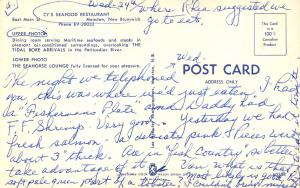 Wed-24th Where Rhea suggested we
go to eat.
CY'S SEAFOOD RESTAURANT
East Main St. Moncton, New Brunswick
Phone EV-20032
UPPER PHOTO
Dining room serving Maritime seafoods and steaks in
pleasant air-conditioned surroundings, overlooking THE
TIDAL BORE ARRIVALS in the Petitcodiac River.
LOWER PHOTO
THE SEAHORSE LOUNGE fully licensed for your pleasure.
This is a
100%
Canadian
Product
Wed.
POST CARD
ADDRESS ONLY
The night we telephoned
you this was where we'd just eaten. I had
a "Fisherman's Plate" and Daddy had
F.F. Shrimp. Very good. Yesterday we had
fresh salmon - a delicate pink & pieces were
about 3" thick. Are in "fish country", so
take advantage of it.
soft pale green part of a lobster. I couldn't